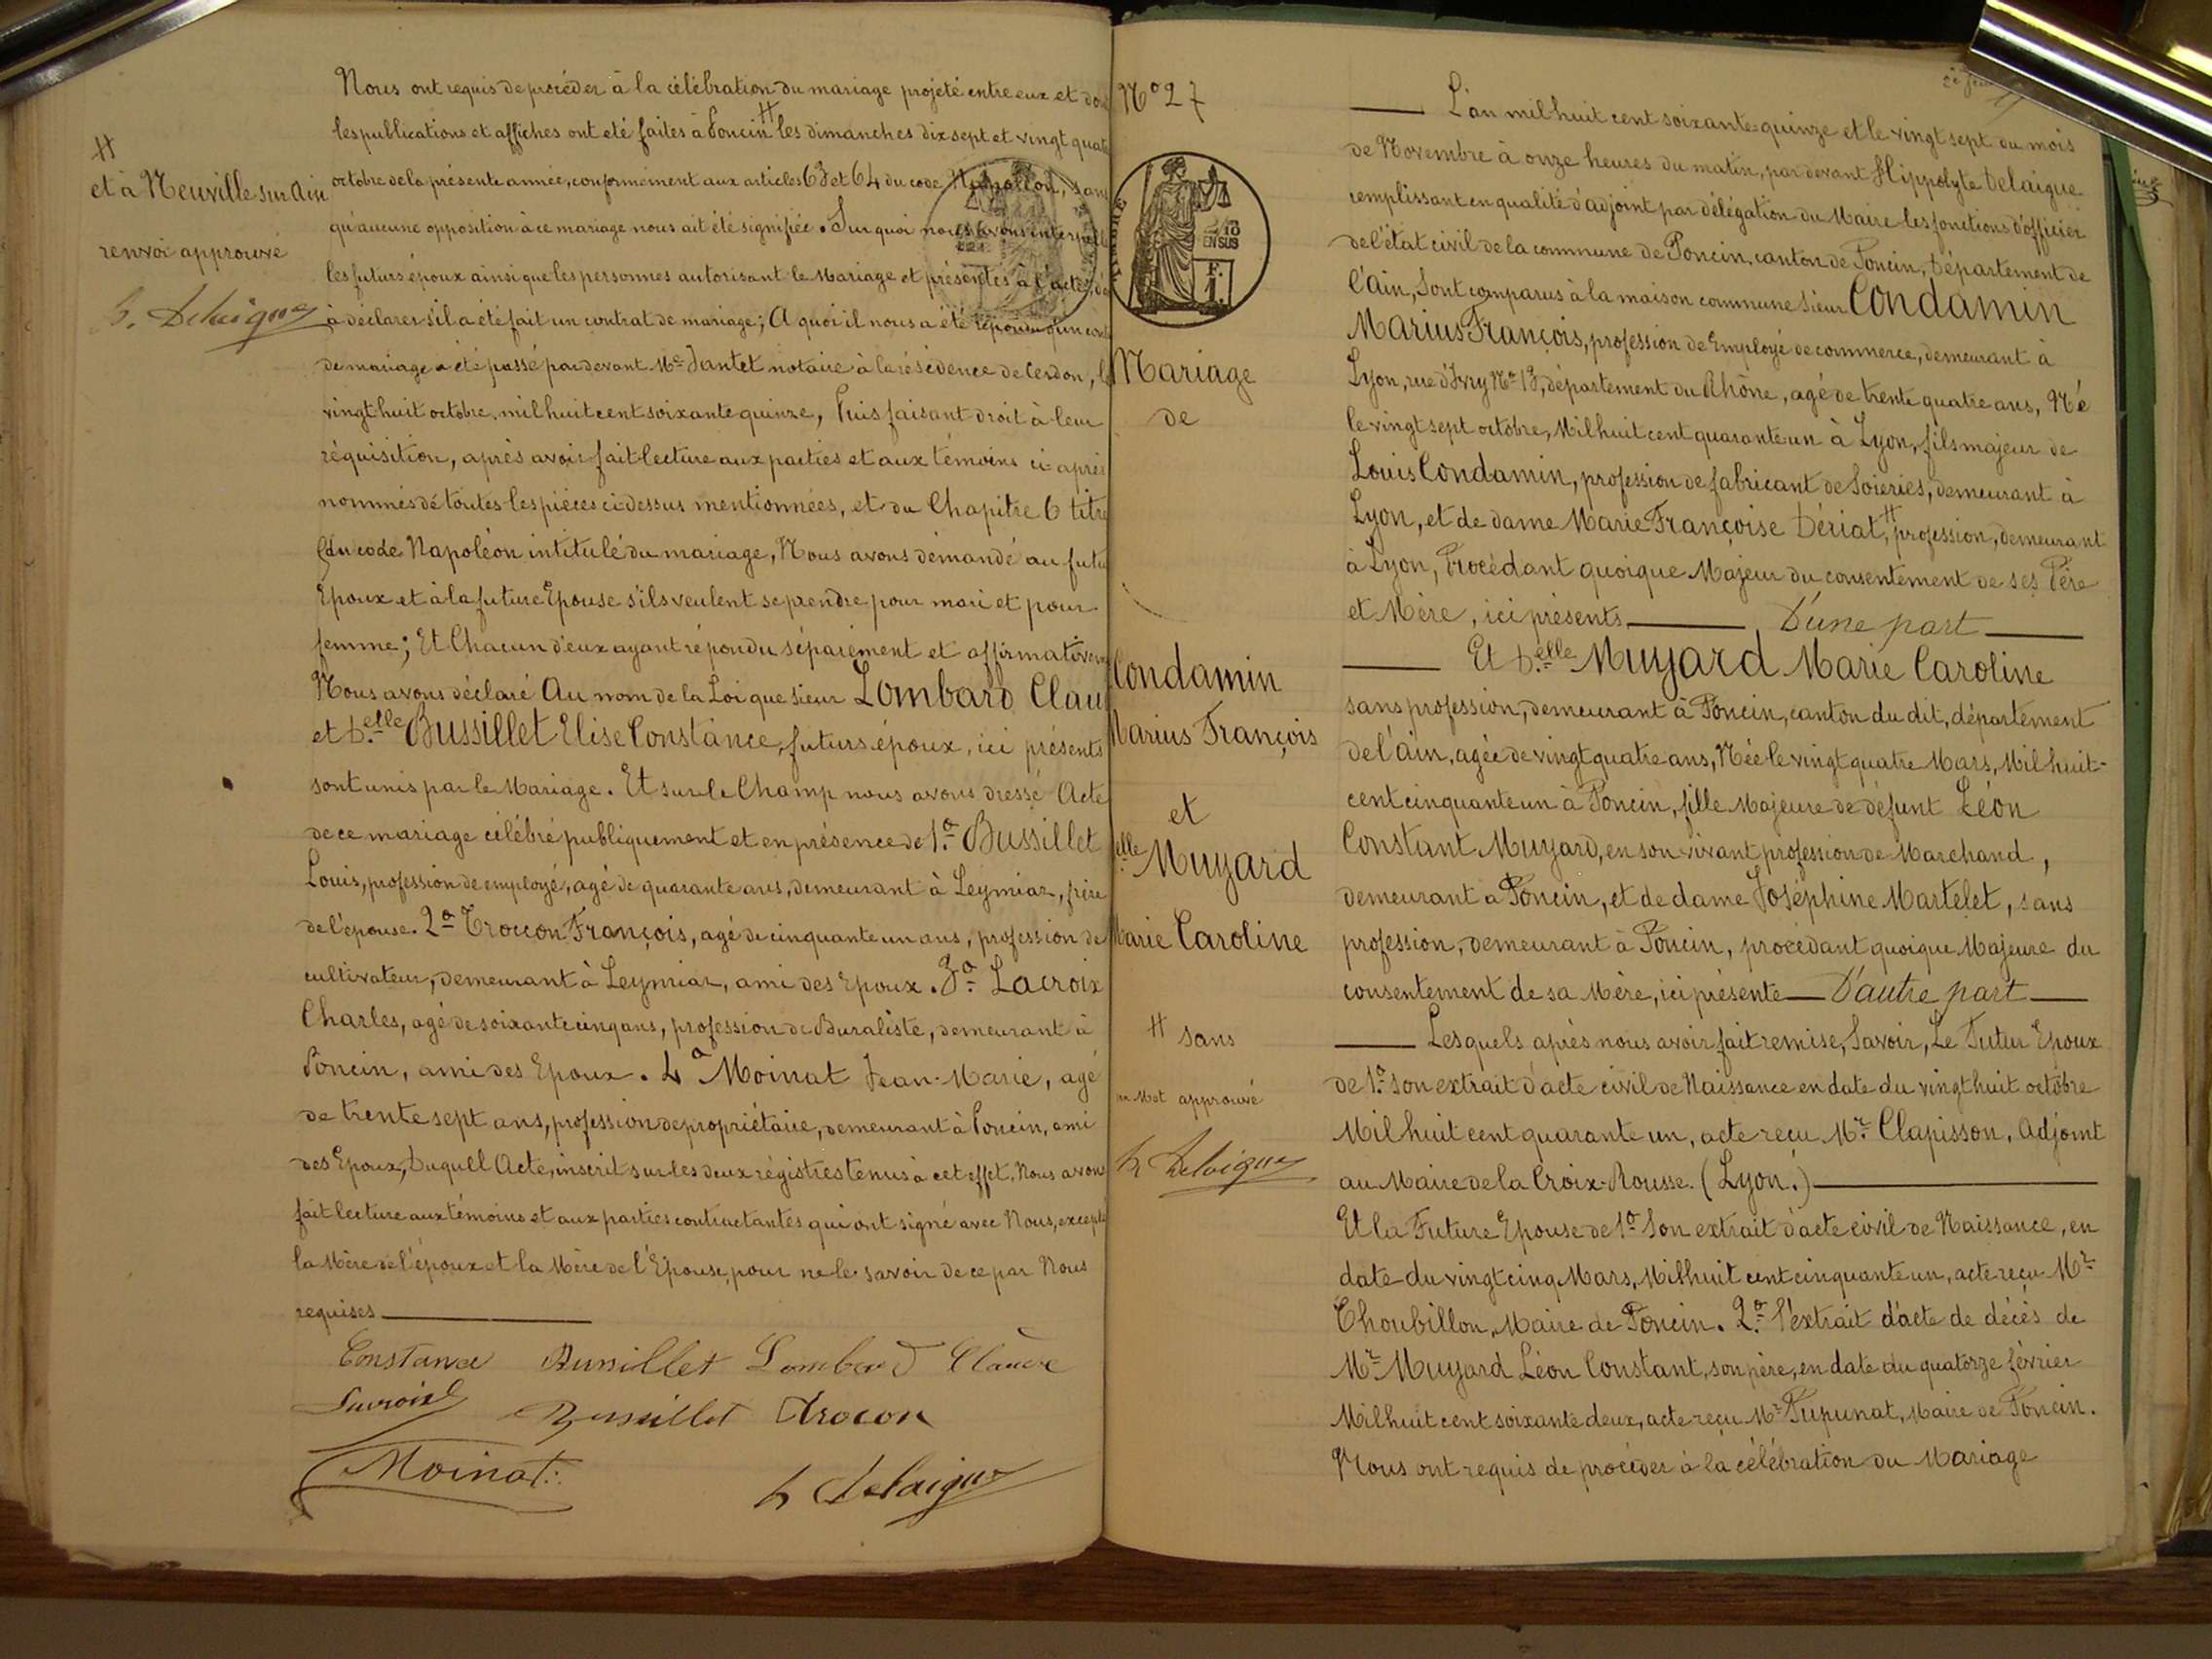 Nous ont requis de procéder à la célébration du mariage projeté entre eux et dont
les publications et affiches ont été faites à Poncin # les dimanches dix sept et vingt quatre
#
et à Neuville sur Ain
renvoi approuvé
h. Delaigue
octobre de la présente année, conformément aux articles 63 et 64 du code Napoléon, sans
qu'aucune opposition à ce mariage nous ait été signifiée. Sur quoi nous avons interpellé
les futurs époux ainsi que les personnes autorisant le Mariage et présentes à l'acte,
à déclarer s'il a été fait un contrat de mariage; A quoi il nous a été répondu qu'un
de mariage a été passé par devant Me Jantet notaire à la résidence de Cerdon, le
vingt huit octobre, mil huit cent soixante quinze, Puis faisant droit à leur
réquisition, après avoir fait lecture aux parties et aux témoins ci-après
nommés de toutes les pièces ci dessus mentionnées, et du Chapitre 6 titre
du code Napoléon intitulé du mariage, Nous avons demandé au futur
Epoux et à la future Epouse s'ils veulent se prendre pour mari et pour
femme; Et Chacun d'eux ayant répondu séparément et affirmativem
Nous avons déclaré Au nom de la Loi que sieur Lombard Clau
et Delle Bussillet Elise Constance, futurs époux, ici présents
sont unis par le Mariage. Et sur le Champ nous avons dressé Acte
de ce mariage célébré publiquement et en présence de 1o Bussillet
Louis, profession de employé, agé de quarante ans, demeurant à Leymiar, frère
de l'épouse. 2o Croccon François, agé de cinquante un ans, profession de
cultivateur, demeurant à Leymiar, ami des Epoux. 3o Lacroix
Charles, agé de soixante cinq ans, profession de Buraliste, demeurant à
Poncin, ami des Epoux. 4o Moinat Jean-Marie, agé
de trente sept ans, profession de propriétaire, demeurant à Poncin, ami
des Epoux, Duquel Acte, inscrit sur les deux régistres tenus à cet effet, Nous avons
fait lecture aux témoins et aux parties contractantes qui ont signé avec Nous, excepté
la Mère de l'époux et la Mère de l'Epouse, pour ne le savoir de ce par Nous
requises
Constance Bussillet Lombard Claude
Lacroix Bussillet Crocon
Moinat
h Delaigue
No 27
Mariage
de
Condamin
Marius François
et
elle Muyard
Marie Caroline
# sans
un Mot approuvé
h Delaigue
L'an mil huit cent soixante-quinze et le vingt sept du mois
de Novembre à onze heures du matin, par devant Hippolyte Delaigue
remplissant en qualité d'adjoint par délégation du Maire les fonctions d'officier
de l'état civil de la commune de Poncin, canton de Poncin, Département de
l'Ain, Sont comparus à la maison commune sieur Condamin
Marius François, profession de Employé de commerce, demeurant à
Lyon, rue d'Ivry No 13, département du Rhône, agé de trente quatre ans, Né
le vingt sept octobre, Mil huit cent quarante un à Lyon, fils majeur de
Louis Condamin, profession de fabricant de Soieries, demeurant à
Lyon, et de dame Marie Françoise Dériat, # profession, demeurant
à Lyon, Procédant quoique Majeur du consentement de ses Père
et Mère, ici présents D'une part
Et Delle Muyard Marie Caroline
sans profession, demeurant à Poncin, canton du dit, département
de l'ain, agée de vingt quatre ans, Née le vingt quatre Mars, Mil huit-
cent cinquante un à Poncin, fille Majeure de défunt Léon
Constant Muyard, en son vivant profession de Marchand,
demeurant à Poncin, et de dame Joséphine Martelet, sans
profession, demeurant à Poncin, procédant quoique Majeure du
consentement de sa Mère, ici présente D'autre part
Lesquels après nous avoir fait remise, Savoir, Le Futur Epoux
de 1o Son extrait d'acte civil de Naissance en date du vingt huit octobre
Mil huit cent quarante un, acte reçu Mr Clapisson, Adjoint
au Maire de la Croix-Rousse. (Lyon.)
Et la Future Epouse de 1o Son extrait d'acte civil de Naissance, en
date du vingt cinq Mars, Mil huit cent cinquante un, acte reçu Mr
Choubillon, Maire de Poncin. 2o l'extrait d'acte de décès de
Mr Muyard Léon Constant, son père, en date du quatorze février
Mil huit cent soixante deux, acte reçu Mr Pupunat, Maire de Poncin.
Nous ont requis de procéder à la célébration du Mariage